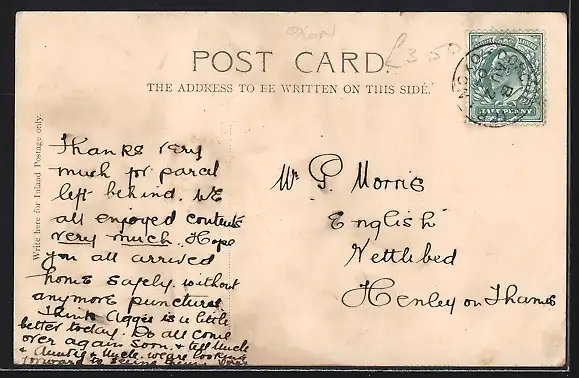 OXON
£3.50
POST CARD.
THE ADDRESS TO BE WRITTEN ON THIS SIDE.
HALFPENNY
Write here for Inland Postage only.
Thanks very
much for parcel
left behind. We
all enjoyed contents
very much. Hope
you all arrived
home safely. without
anymore punctures
Think Aggie is a little
better today. Do all come
over again soon. & tell Uncle
& Aunty & Uncle. we are looking
forward to seeing them.
Mr G Morris
English
Nettlebed
Henley on Thames